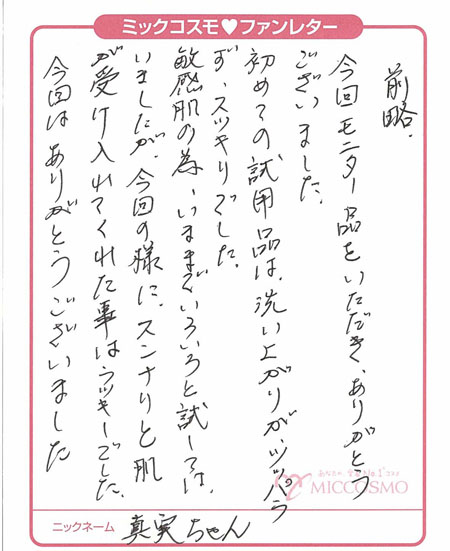 ミックコスモ♥ファンレター
前略、
今回モニター品をいただき、ありがとう
ございました。
初めての試用品は、洗い上がりが、ツッパラ
ず、スッキリでした。
敏感肌の為、いままでいろいろと試しては、
いましたが、今回の様に、スンナリと肌
が受け入れてくれた事はラッキーでした。
今回は ありがとうございました
MICCOSMO
ニックネーム 真実ちゃん